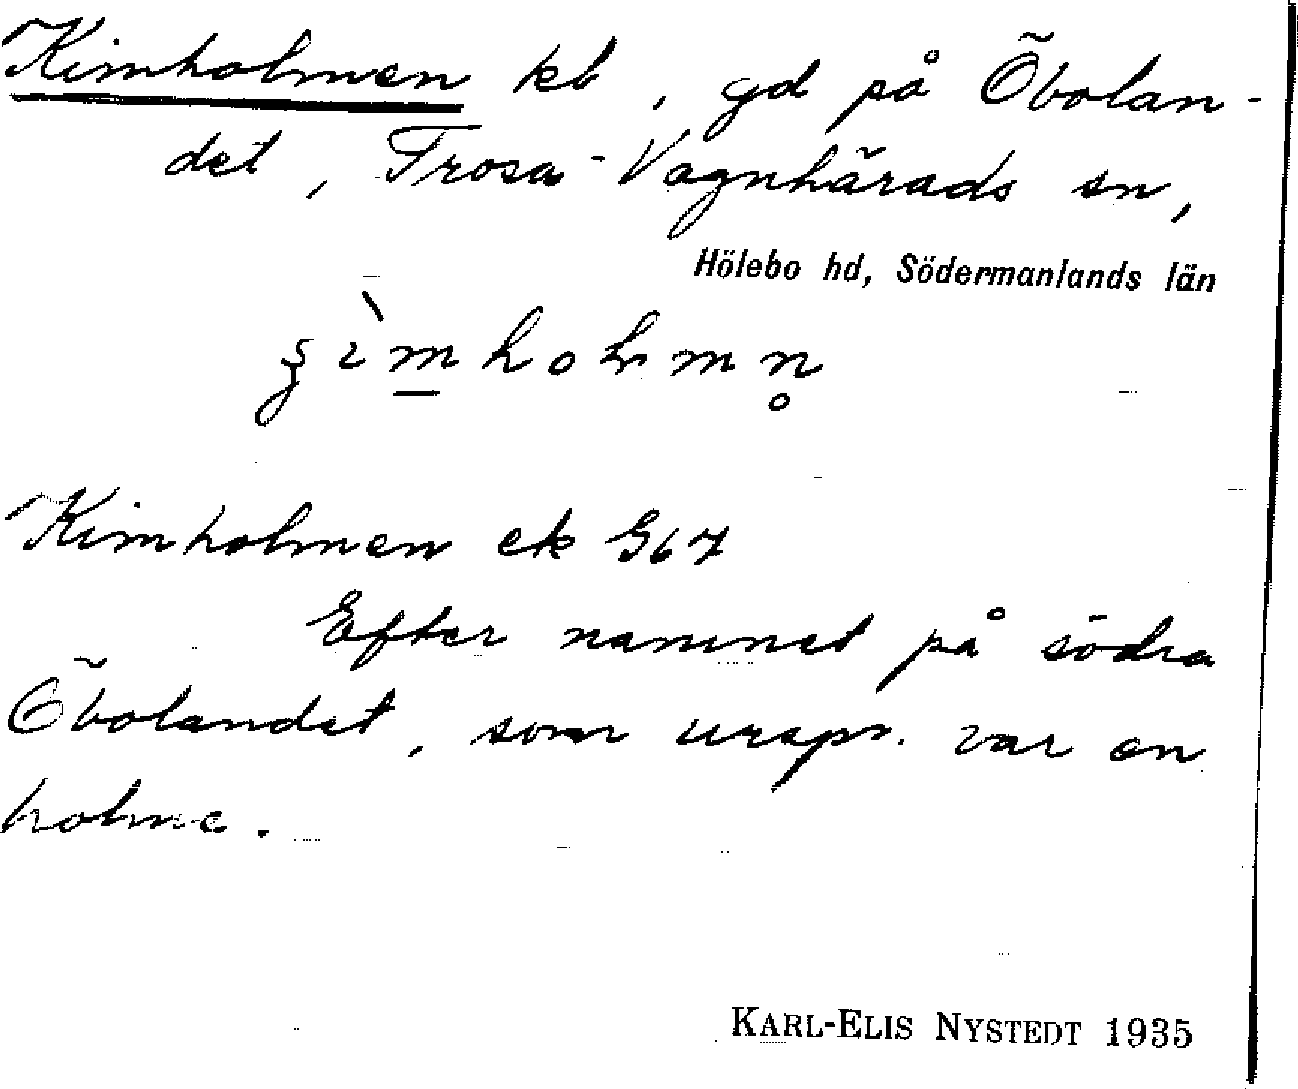 Kimholmen kb, gd på Öbolan-
det, Trosa-Vagnhärads sn,
Hölebo hd, Södermanlands län
Kimholmen ek G67
Efter namnet på södra
Öbolandet, som urspr. var en
holme.
KARL-ELIS NYSTEDT 1935